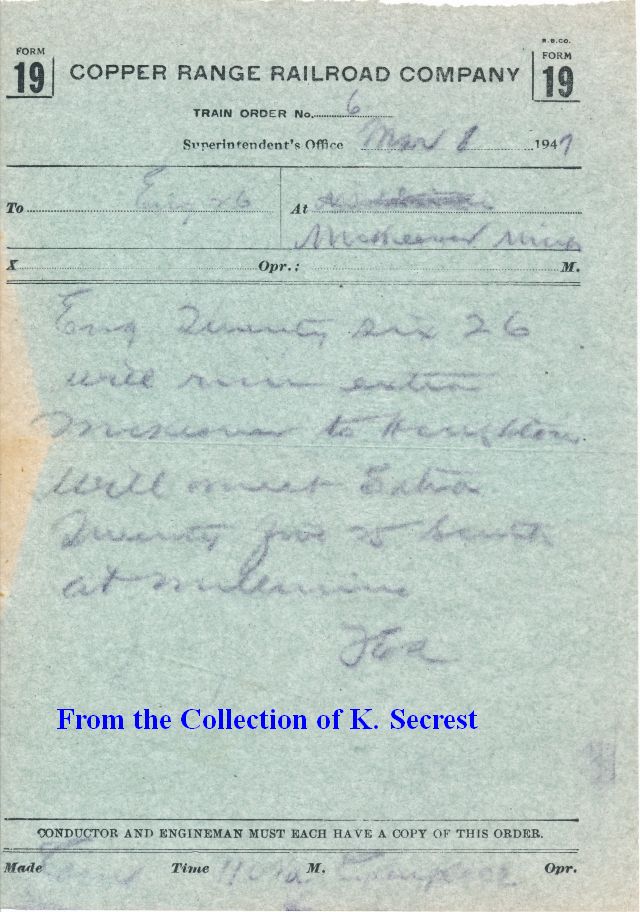 R.B.CO.
FORM 19 COPPER RANGE RAILROAD COMPANY FORM 19
TRAIN ORDER No. 6
Superintendent's Office Mar 8 1947
To Eng 26 At
McKeever
X Opr.: M.
Eng Twenty six 26
will run extra
McKeever to Houghton
Will meet Extra
Twenty five 25 South
at
From the Collection of K. Secrest
CONDUCTOR AND ENGINEMAN MUST EACH HAVE A COPY OF THIS ORDER.
Made Time M. Opr.